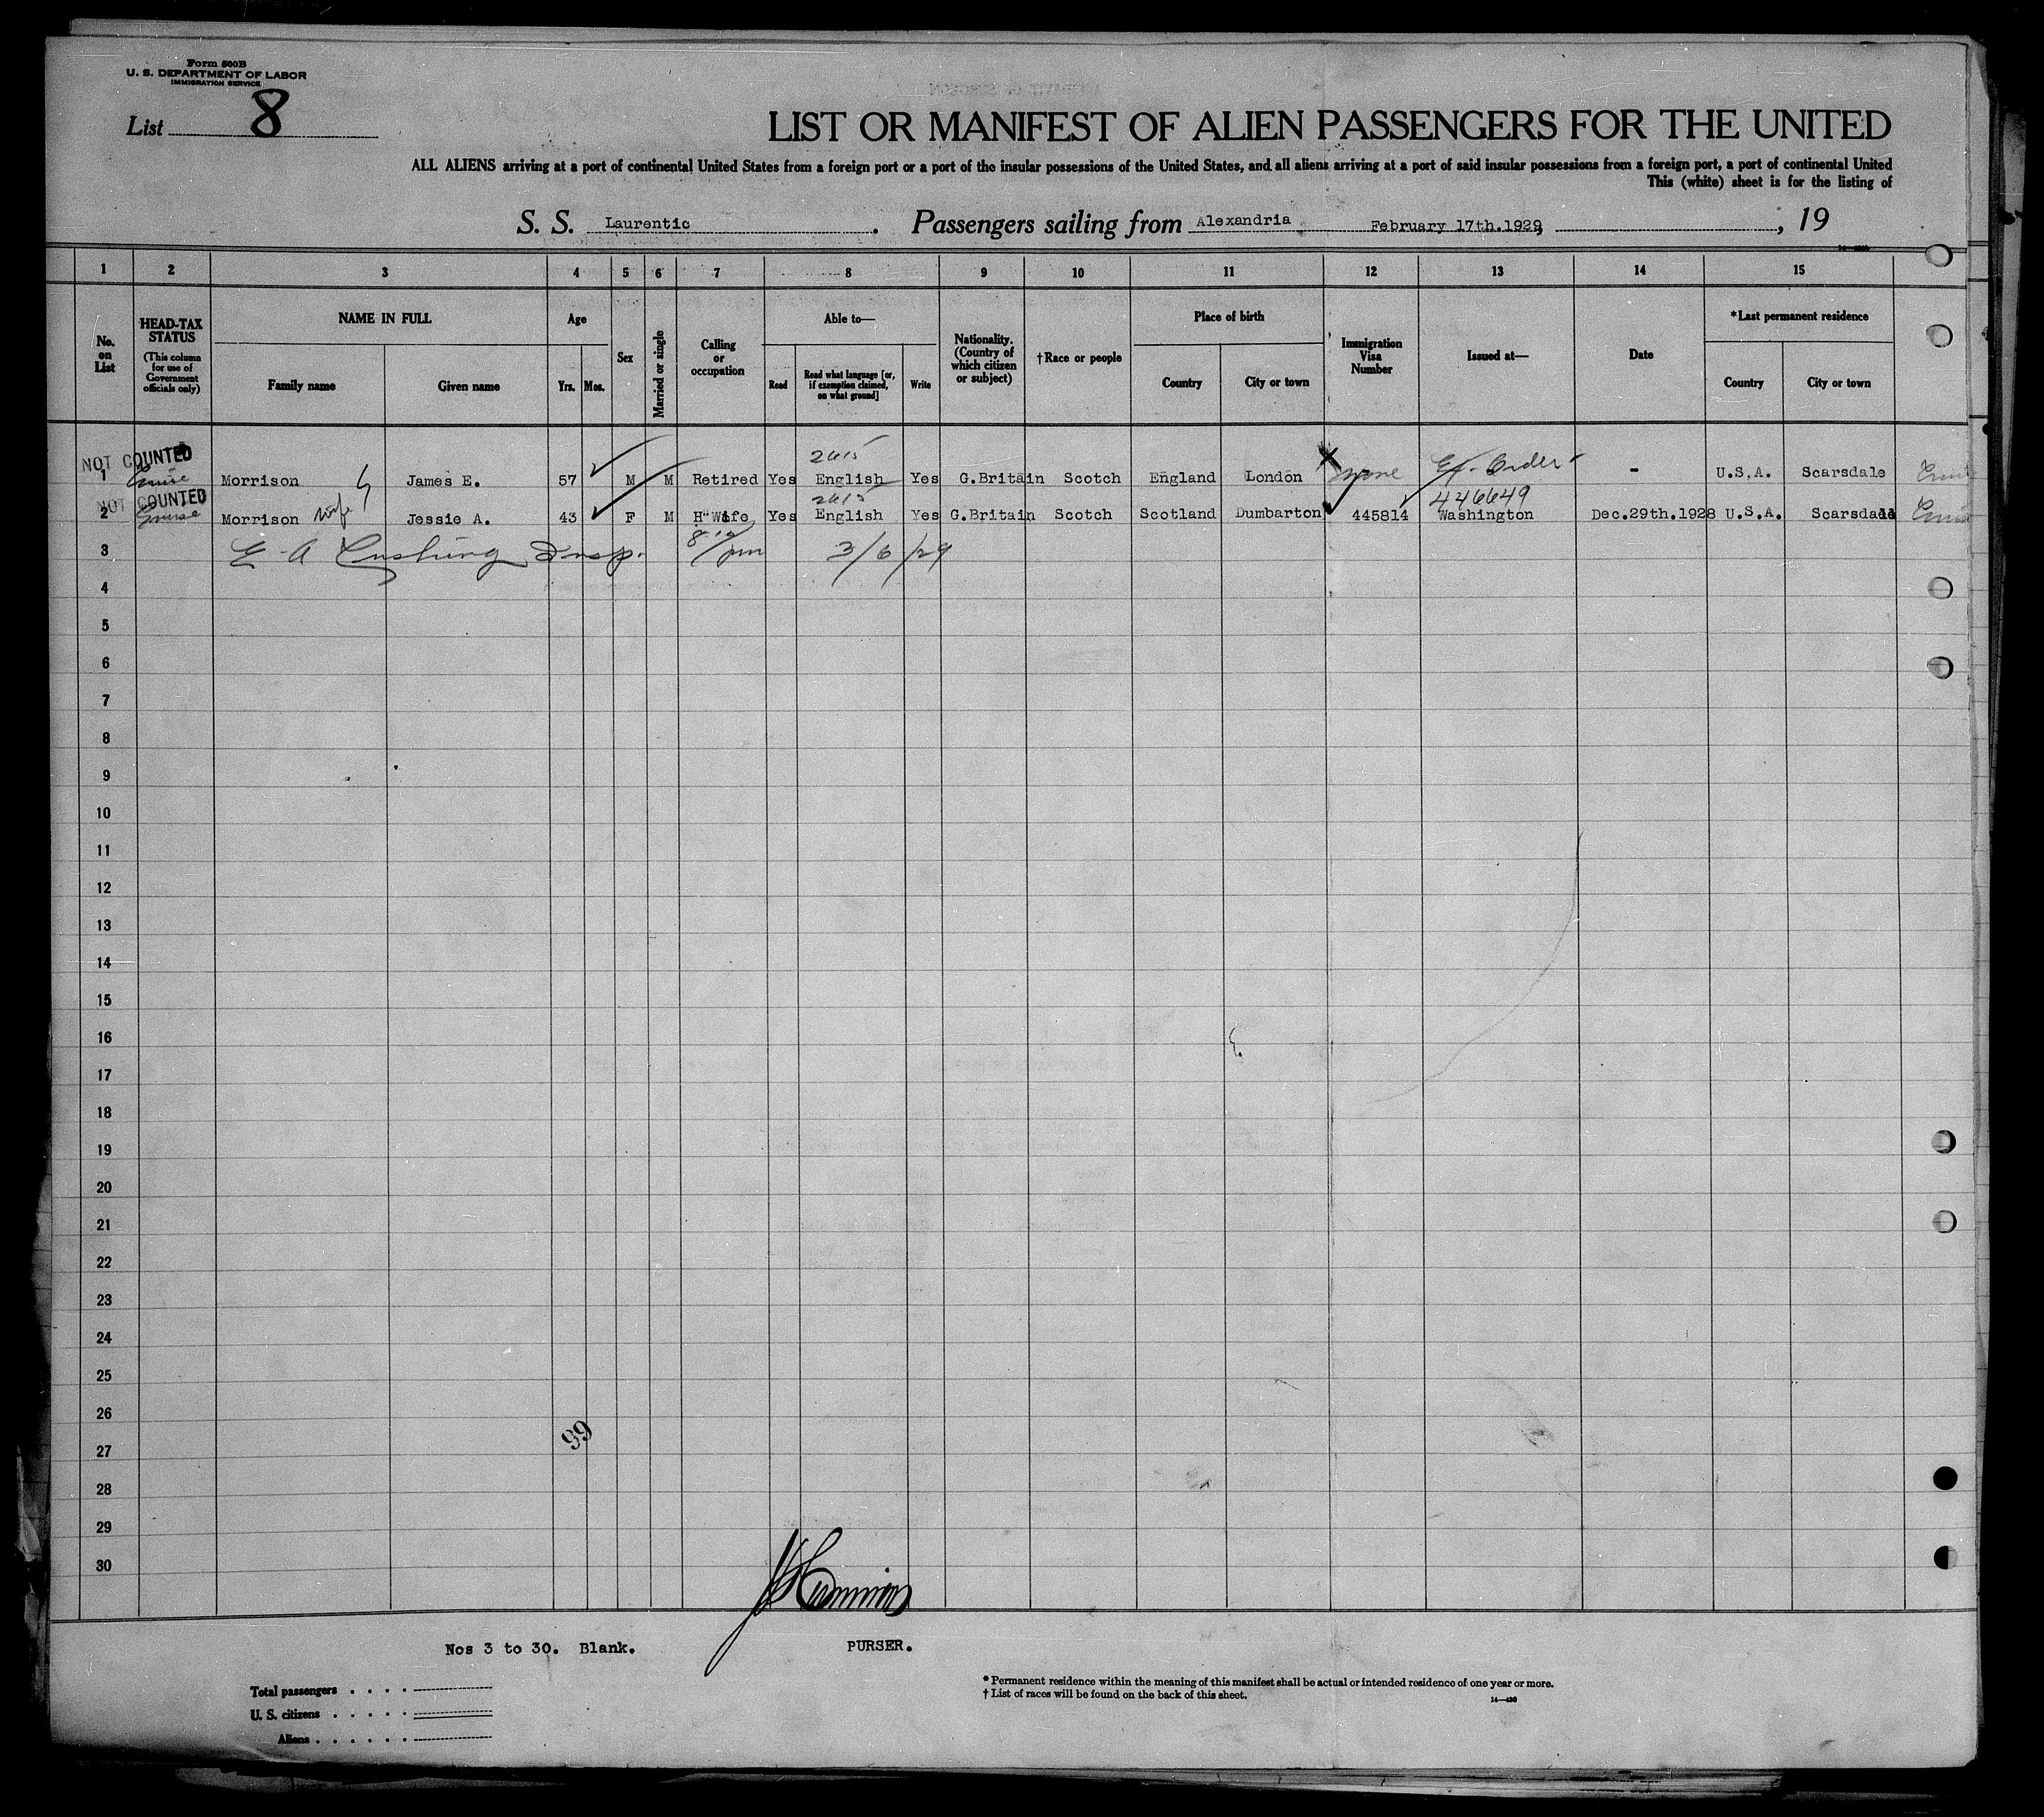 Form 500B
U. S. DEPARTMENT OF LABOR
IMMIGRATION SERVICE
List 8
LIST OR MANIFEST OF ALIEN PASSENGERS FOR THE UNITED
ALL ALIENS arriving at a port of continental United States from a foreign port or a port of the insular possessions of the United States, and all aliens arriving at a port of said insular possessions from a foreign port, a port of continental United
This (white) sheet is for the listing of
S. S. Laurentic. Passengers sailing from Alexandria February 17th.1929, , 19
1 2 3 4 5 6 7 8 9 10 11 12 13 14 15
No. on List
HEAD-TAX STATUS
(This column for use of Government officials only)
NAME IN FULL
Family name
Given name
Age
Yrs.
Mos.
Sex
Married or single
Calling or occupation
Able to—
Read
Read what language [or, if exemption claimed, on what ground]
Write
Nationality. (Country of which citizen or subject)
†Race or people
Place of birth
Country
City or town
Immigration Visa Number
Issued at—
Date
*Last permanent residence
Country
City or town
NOT COUNTED
2615
1 Morrison James E. 57 M M Retired Yes English Yes G.Britain Scotch England London None Ex. Order - U.S.A. Scarsdale
NOT COUNTED
2615
446649
2 Morrison wife Jessie A. 43 F M H"Wife Yes English Yes G.Britain Scotch Scotland Dumbarton 445814 Washington Dec.29th.1928 U.S.A. Scarsdale
3 E A Cushing Insp. pm 3/6/29
4
5
6
7
8
9
10
11
12
13
14
15
16
17
18
19
20
21
22
23
24
25
26
99
27
28
29
30
Nos 3 to 30. Blank.
PURSER.
Total passengers
U. S. citizens
Aliens
* Permanent residence within the meaning of this manifest shall be actual or intended residence of one year or more.
† List of races will be found on the back of this sheet.
14—430